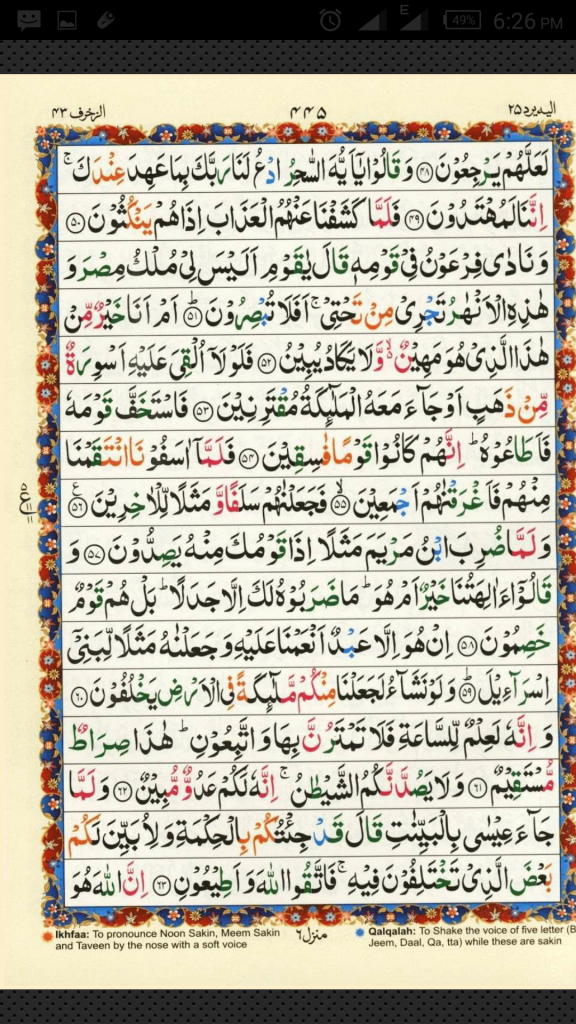 49% 6:26 PM
E
الزخرف ۴۳ ۴۴۵ الیه یرد ۲۵
لَعَلَّهُمْ يَرْجِعُوْنَ ﴿۴۸﴾ وَقَالُوْا يٰۤاَيُّهَ السّٰحِرُ ادْعُ لَنَا رَبَّكَ بِمَا عَهِدَ عِنْدَكَ ۚ
اِنَّنَا لَمُهْتَدُوْنَ ﴿۴۹﴾ فَلَمَّا كَشَفْنَا عَنْهُمُ الْعَذَابَ اِذَا هُمْ يَنْكُثُوْنَ ﴿۵۰﴾
وَنَادٰى فِرْعَوْنُ فِيْ قَوْمِهٖ قَالَ يٰقَوْمِ اَلَيْسَ لِيْ مُلْكُ مِصْرَ وَ
هٰذِهِ الْاَنْهٰرُ تَجْرِيْ مِنْ تَحْتِيْ ۚ اَفَلَا تُبْصِرُوْنَ ﴿۵۱﴾ اَمْ اَنَا خَيْرٌ مِّنْ
هٰذَا الَّذِيْ هُوَ مَهِيْنٌ ۙ وَّلَا يَكَادُ يُبِيْنُ ﴿۵۲﴾ فَلَوْلَاۤ اُلْقِيَ عَلَيْهِ اَسْوِرَةٌ
مِّنْ ذَهَبٍ اَوْ جَآءَ مَعَهُ الْمَلٰٓئِكَةُ مُقْتَرِنِيْنَ ﴿۵۳﴾ فَاسْتَخَفَّ قَوْمَهٗ
فَاَطَاعُوْهُ ؕ اِنَّهُمْ كَانُوْا قَوْمًا فٰسِقِيْنَ ﴿۵۴﴾ فَلَمَّاۤ اٰسَفُوْنَا انْتَقَمْنَا
مِنْهُمْ فَاَغْرَقْنٰهُمْ اَجْمَعِيْنَ ﴿۵۵﴾ ۙ فَجَعَلْنٰهُمْ سَلَفًا وَّمَثَلًا لِّلْاٰخِرِيْنَ ﴿۵۶﴾
وَلَمَّا ضُرِبَ ابْنُ مَرْيَمَ مَثَلًا اِذَا قَوْمُكَ مِنْهُ يَصِدُّوْنَ ﴿۵۷﴾ وَ
قَالُوْۤا ءَاٰلِهَتُنَا خَيْرٌ اَمْ هُوَ ؕ مَا ضَرَبُوْهُ لَكَ اِلَّا جَدَلًا ؕ بَلْ هُمْ قَوْمٌ
خَصِمُوْنَ ﴿۵۸﴾ اِنْ هُوَ اِلَّا عَبْدٌ اَنْعَمْنَا عَلَيْهِ وَجَعَلْنٰهُ مَثَلًا لِّبَنِيْۤ
اِسْرَآءِيْلَ ﴿۵۹﴾ ؕ وَلَوْ نَشَآءُ لَجَعَلْنَا مِنْكُمْ مَّلٰٓئِكَةً فِي الْاَرْضِ يَخْلُفُوْنَ ﴿۶۰﴾
وَاِنَّهٗ لَعِلْمٌ لِّلسَّاعَةِ فَلَا تَمْتَرُنَّ بِهَا وَاتَّبِعُوْنِ ؕ هٰذَا صِرَاطٌ
مُّسْتَقِيْمٌ ﴿۶۱﴾ وَلَا يَصُدَّنَّكُمُ الشَّيْطٰنُ ۚ اِنَّهٗ لَكُمْ عَدُوٌّ مُّبِيْنٌ ﴿۶۲﴾ وَلَمَّا
جَآءَ عِيْسٰى بِالْبَيِّنٰتِ قَالَ قَدْ جِئْتُكُمْ بِالْحِكْمَةِ وَلِاُبَيِّنَ لَكُمْ
بَعْضَ الَّذِيْ تَخْتَلِفُوْنَ فِيْهِ ۚ فَاتَّقُوا اللّٰهَ وَاَطِيْعُوْنِ ﴿۶۳﴾ اِنَّ اللّٰهَ هُوَ
منزل ۶
Ikhfaa: To pronounce Noon Sakin, Meem Sakin
and Taveen by the nose with a soft voice
Qalqalah: To Shake the voice of five letter (B
Jeem, Daal, Qa, tta) while these are sakin